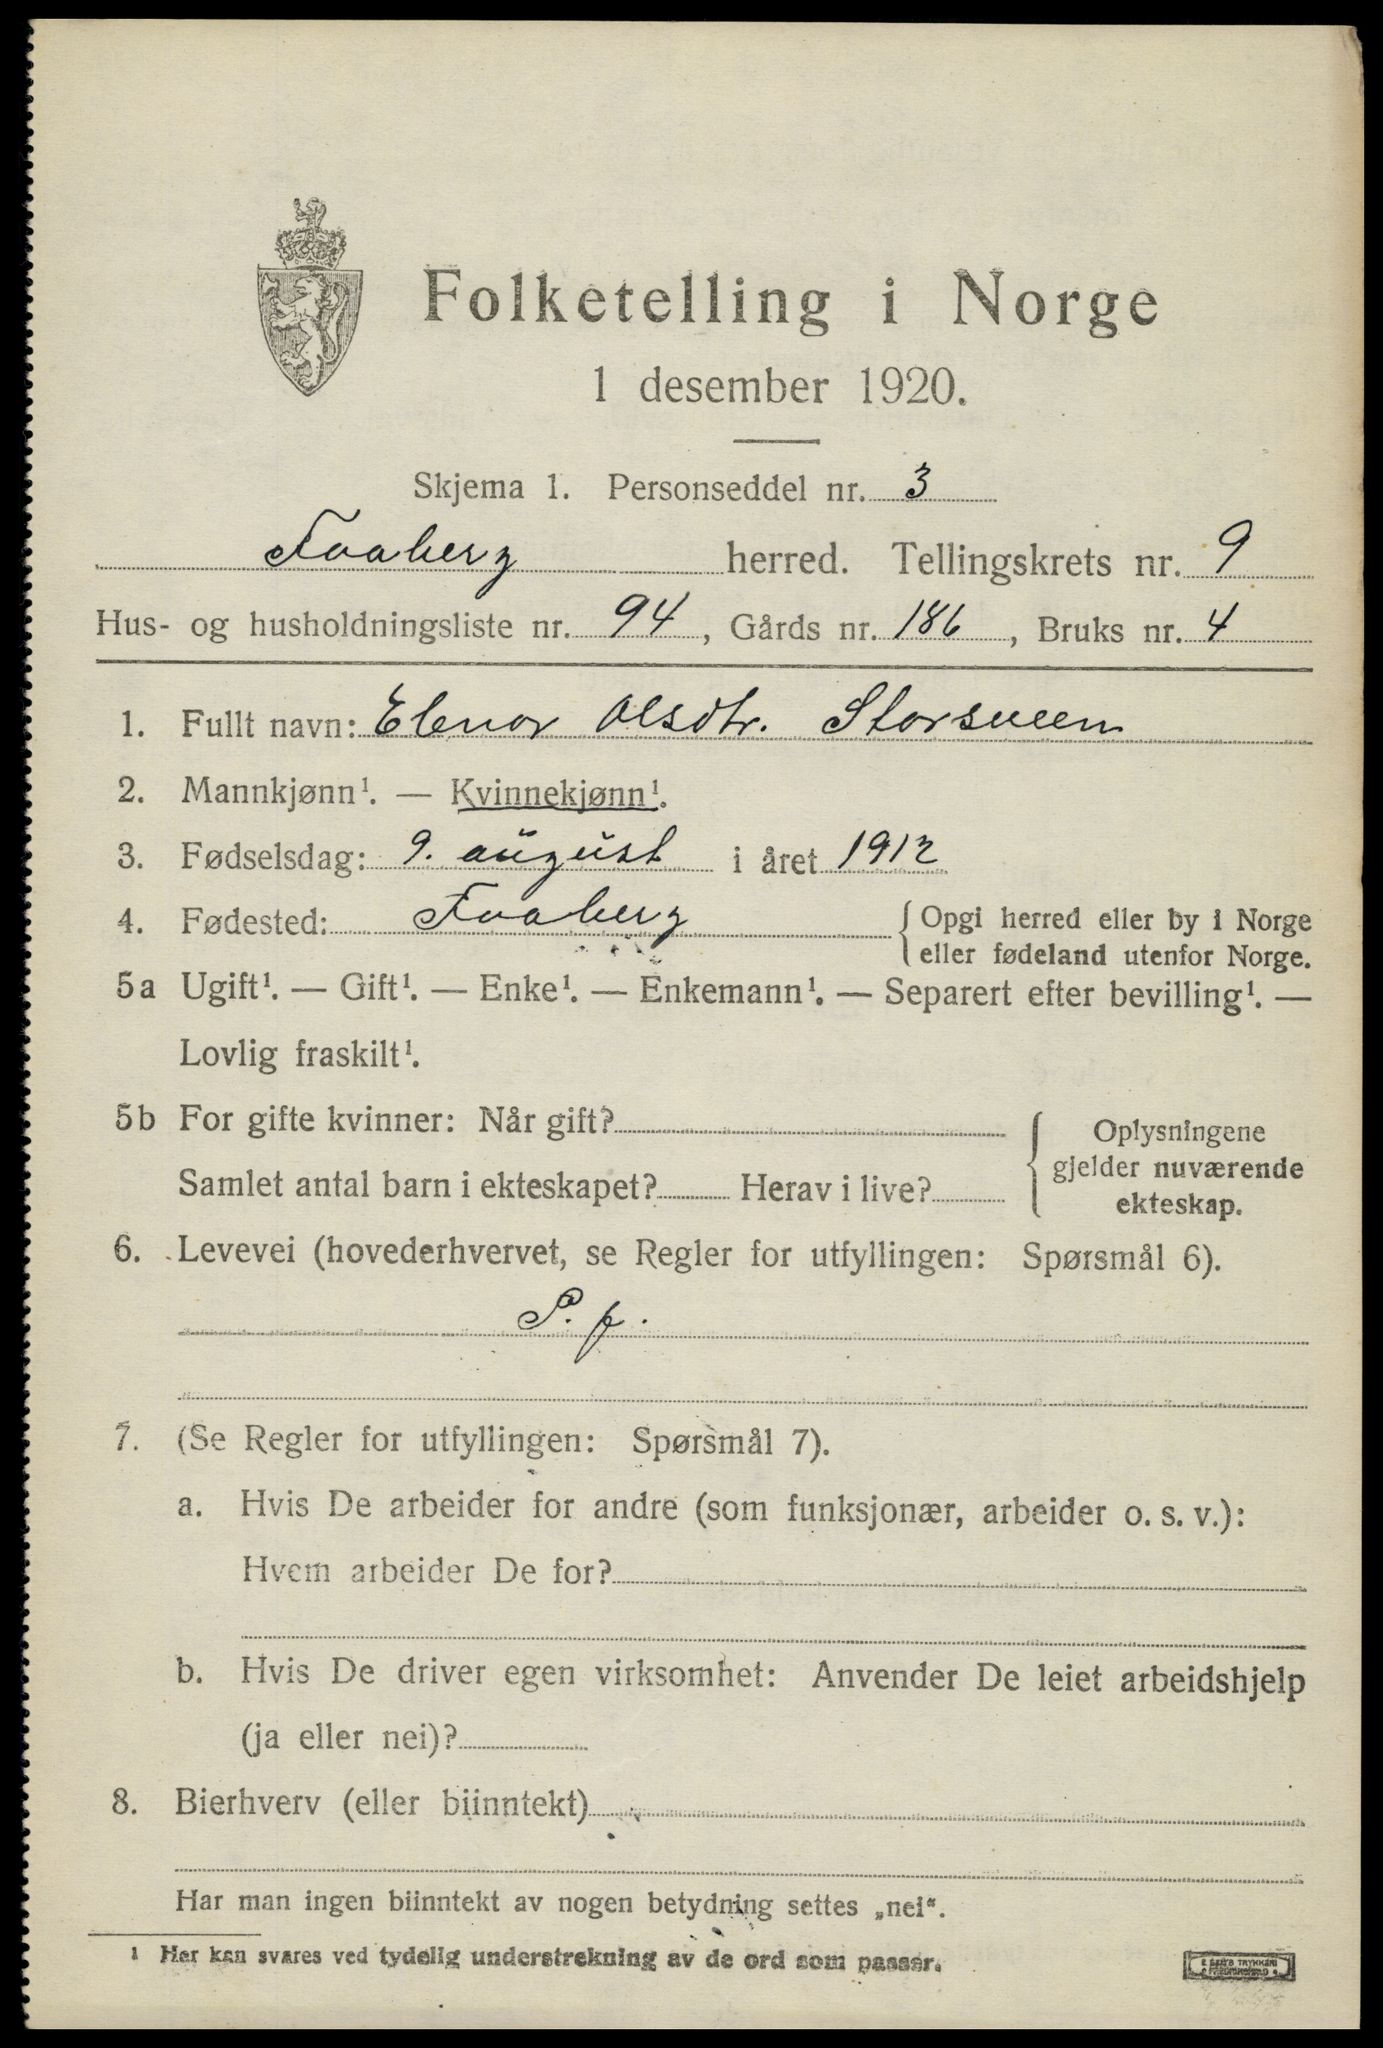 Folketelling i Norge
1 desember 1920.
Skjema 1. Personseddel nr. 3
Faaberg herred. Tellingskrets nr. 9
Hus- og husholdningsliste nr. 94, Gårds nr. 186, Bruks nr. 4
1. Fullt navn: Elenor Olsdtr. Storsveen
2. Mannkjønn¹. — Kvinnekjønn¹.
3. Fødselsdag: 9. august i året 1912
4. Fødested: Faaberg {Opgi herred eller by i Norge
eller fødeland utenfor Norge.
5a Ugift¹. — Gift¹. — Enke¹. — Enkemann¹. — Separert efter bevilling¹. —
Lovlig fraskilt¹.
5b For gifte kvinner: Når gift?
Samlet antal barn i ekteskapet? Herav i live?
Oplysningene
gjelder nuværende
ekteskap.
6. Levevei (hovederhvervet, se Regler for utfyllingen: Spørsmål 6).
P. f.
7. (Se Regler for utfyllingen: Spørsmål 7).
a. Hvis De arbeider for andre (som funksjonær, arbeider o. s. v.):
Hvem arbeider De for?
b. Hvis De driver egen virksomhet: Anvender De leiet arbeidshjelp
(ja eller nei)?
8. Bierhverv (eller biinntekt)
Har man ingen biinntekt av nogen betydning settes „nei“.
1 Her kan svares ved tydelig understrekning av de ord som passer.